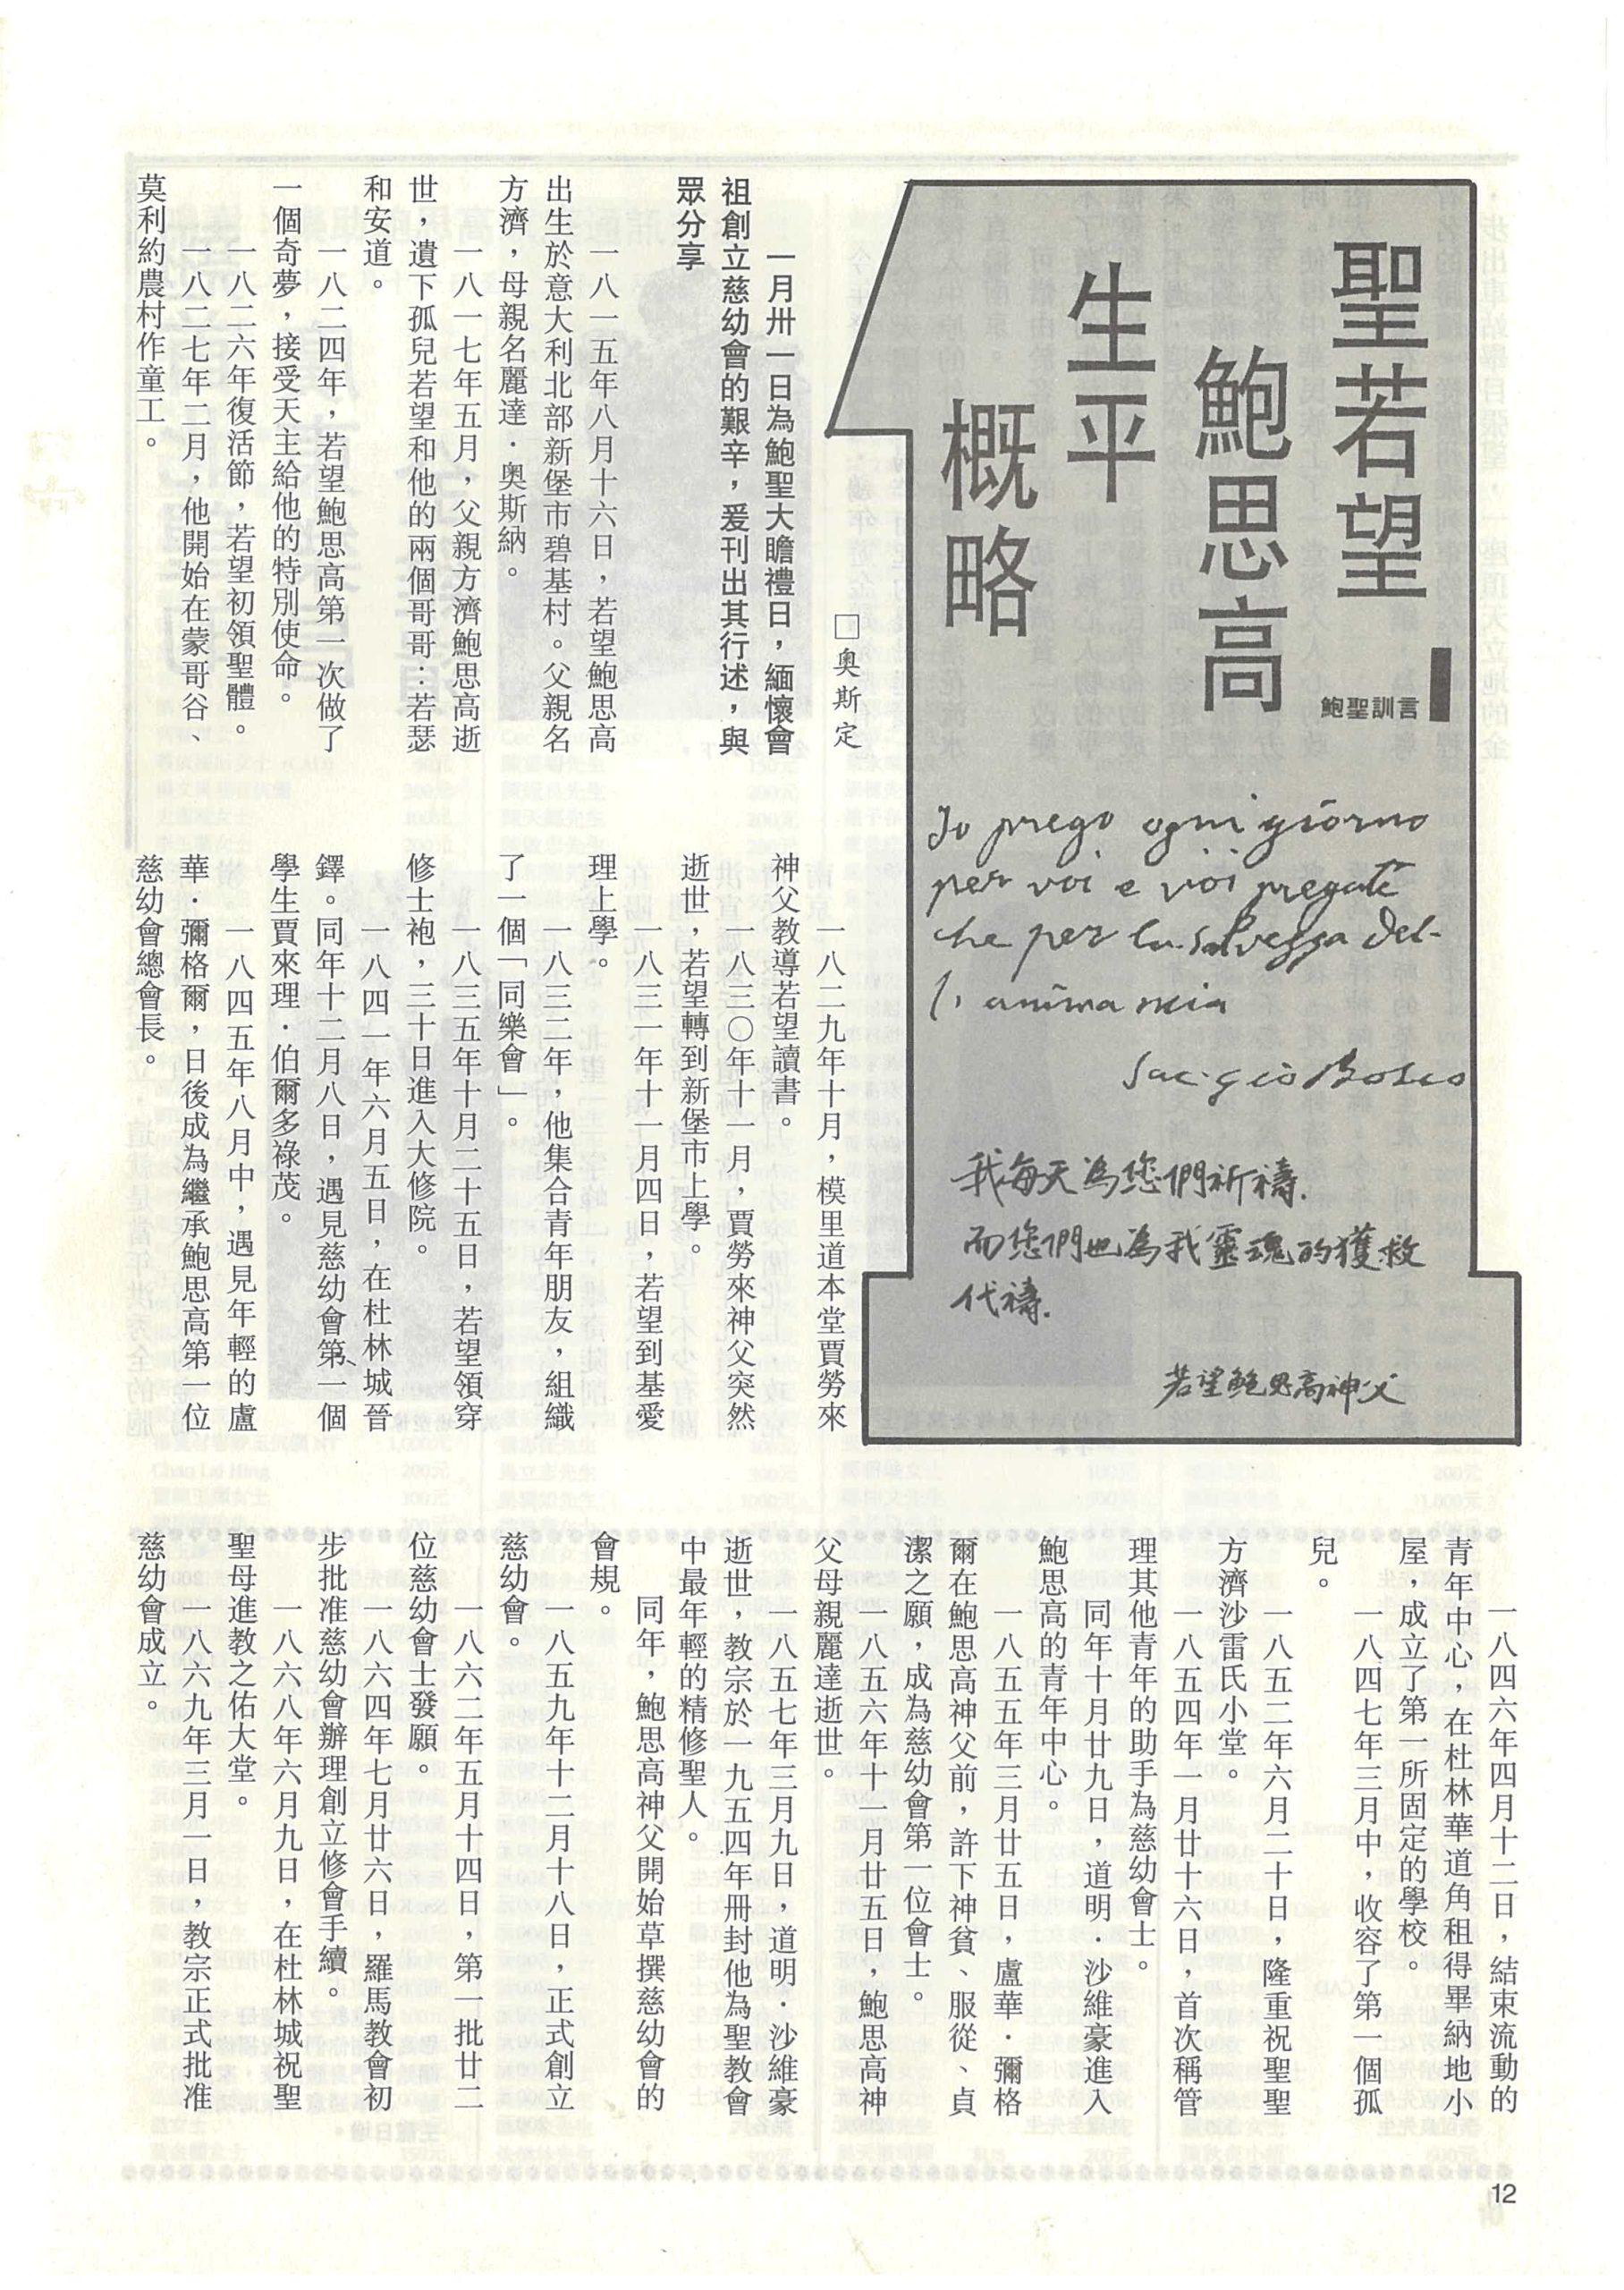 聖若望
鮑思高
生平
概略
鮑聖訓言
Io prego ogni giorno
per voi e voi pregate
che per la salvezza del-
l'anima mia
Sac. Gio Bosco
我每天為您們祈禱.
而您們也為我靈魂的獲救
代禱.
若望鮑思高神父
□奧斯定
一月卅一日為鮑聖大瞻禮日，緬懷會
祖創立慈幼會的艱辛，爰刊出其行述，與
眾分享
一八一五年八月十六日，若望鮑思高
出生於意大利北部新堡市碧基村。父親名
方濟，母親名麗達．奧斯納。
一八一七年五月，父親方濟鮑思高逝
世，遺下孤兒若望和他的兩個哥哥：若瑟
和安道。
一八二四年，若望鮑思高第一次做了
一個奇夢，接受天主給他的特別使命。
一八二六年復活節，若望初領聖體。
一八二七年二月，他開始在蒙哥谷、
莫利約農村作童工。
一八二九年十月，模里道本堂賈勞來
神父教導若望讀書。
一八三〇年十一月，賈勞來神父突然
逝世，若望轉到新堡市上學。
一八三一年十一月四日，若望到基愛
理上學。
一八三二年，他集合青年朋友，組織
了一個「同樂會」。
一八三五年十月二十五日，若望領穿
修士袍，三十日進入大修院。
一八四一年六月五日，在杜林城晉
鐸。同年十二月八日，遇見慈幼會第一個
學生賈來理．伯爾多祿茂。
一八四五年八月中，遇見年輕的盧
華．彌格爾，日後成為繼承鮑思高第一位
慈幼會總會長。
一八四六年四月十二日，結束流動的
青年中心，在杜林華道角租得畢納地小
屋，成立了第一所固定的學校。
一八四七年三月中，收容了第一個孤
兒。
一八五二年六月二十日，隆重祝聖聖
方濟沙雷氏小堂。
一八五四年一月廿十六日，首次稱管
理其他青年的助手為慈幼會士。
同年十月廿九日，道明．沙維豪進入
鮑思高的青年中心。
一八五五年三月廿五日，盧華．彌格
爾在鮑思高神父前，許下神貧、服從、貞
潔之願，成為慈幼會第一位會士。
一八五六年十一月廿五日，鮑思高神
父母親麗達逝世。
一八五七年三月九日，道明．沙維豪
逝世，教宗於一九五四年冊封他為聖教會
中最年輕的精修聖人。
同年，鮑思高神父開始草撰慈幼會的
會規。
一八五九年十二月十八日，正式創立
慈幼會。
一八六二年五月十四日，第一批廿二
位慈幼會士發願。
一八六四年七月廿六日，羅馬教會初
步批准慈幼會辦理創立修會手續。
一八六八年六月九日，在杜林城祝聖
聖母進教之佑大堂。
一八六九年三月一日，教宗正式批准
慈幼會成立。
12